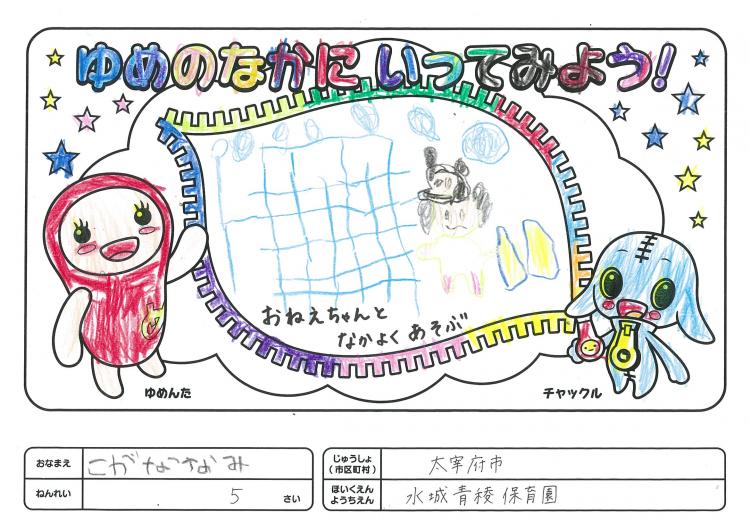 ゆめのなかに いってみよう!
おねえちゃんと
なかよく あそぶ
ゆめんた
チャックル
おなまえ
こが ななみ
じゅうしょ
(市区町村)
太宰府市
ねんれい
5 さい
ほいくえん
ようちえん
水城青稜保育園